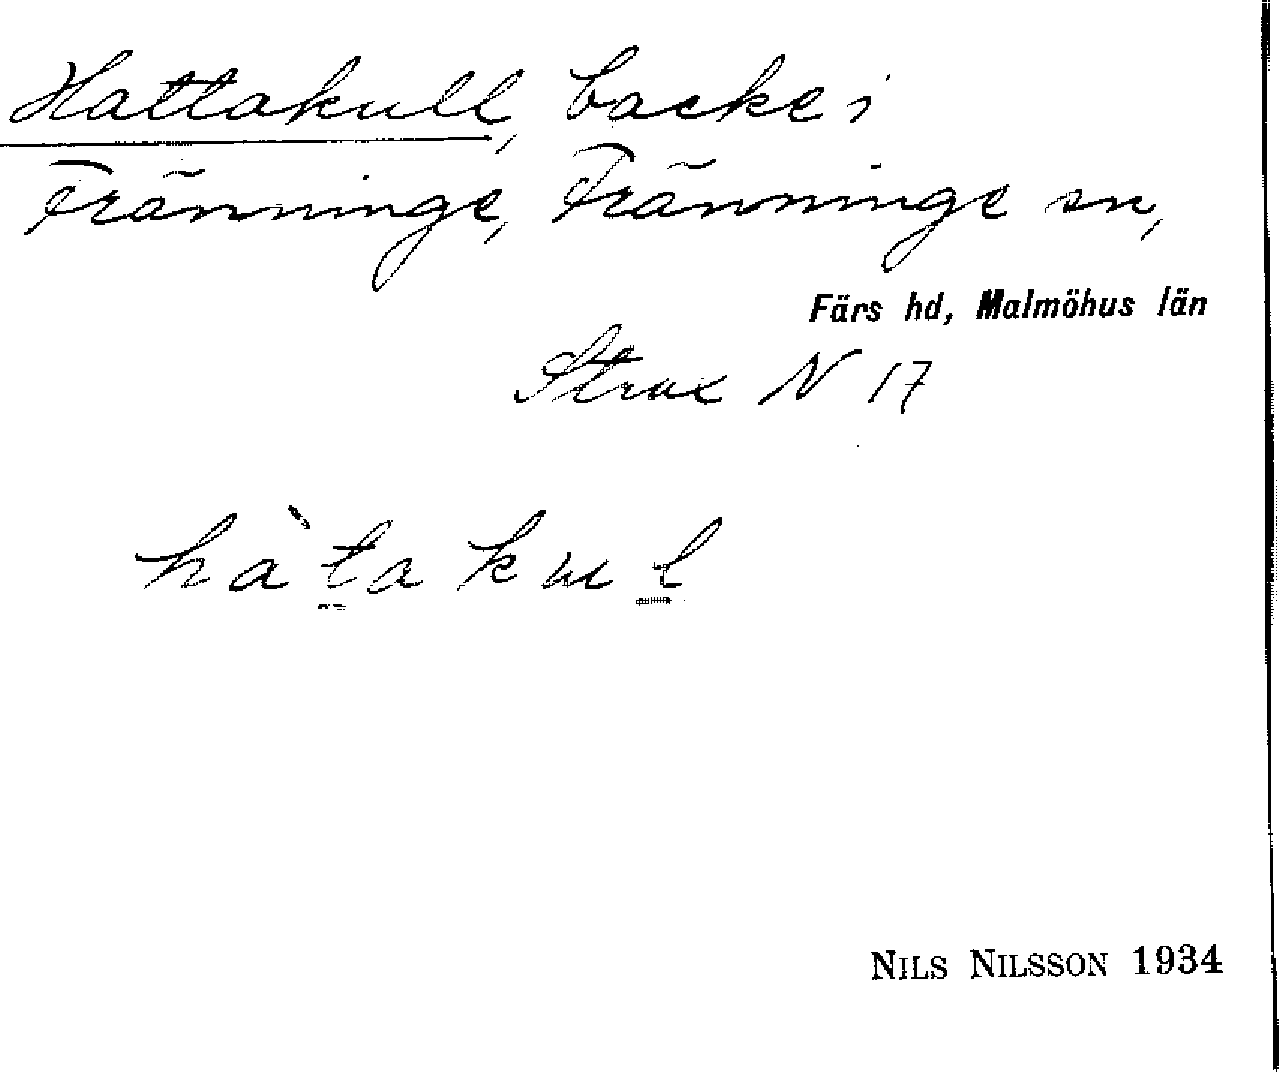 Hattakull, backe i
Fränninge, Fränninge sn,
Färs hd, Malmöhus län
Strax N 17
hàtakul
NILS NILSSON 1934